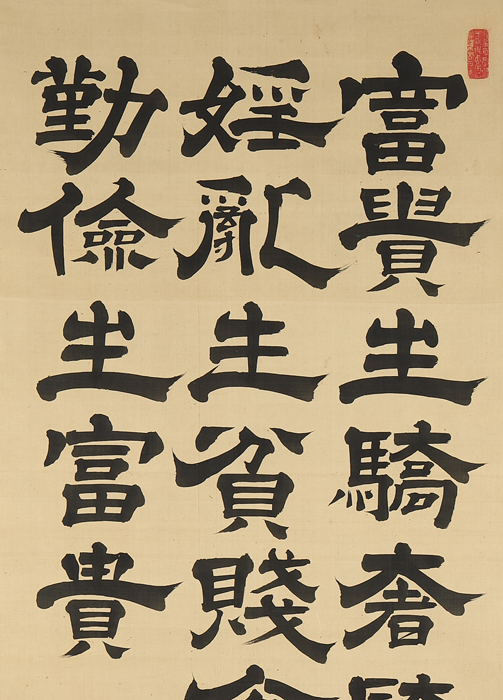 富貴生驕奢
婬亂生貧賤
勤儉生富貴